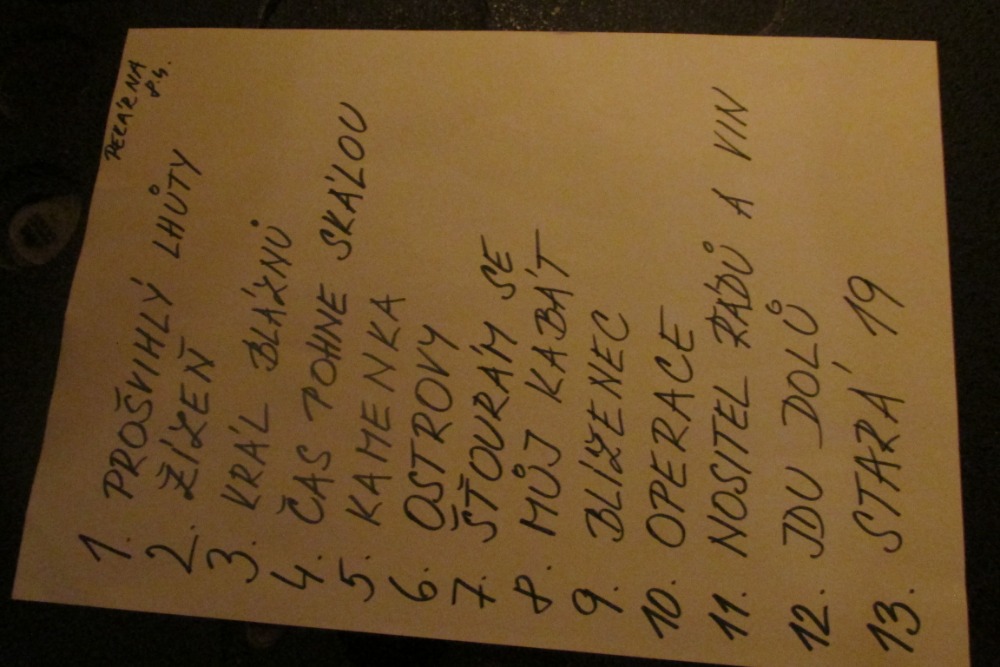 PEKÁRNA
8.4.
1. PROŠVIHLÝ LHŮTY
2. ŽÍZEŇ
3. KRÁL BLÁZNŮ
4. ČAS POHNE SKÁLOU
5. KAMENKA
6. OSTROVY
7. ŠŤOURÁM SE
8. MŮJ KABÁT
9. BLIZENEC
10. OPERACE
11. NOSITEL ŘÁDŮ A VIN
12. JDU DOLŮ
13. STARÁ 19